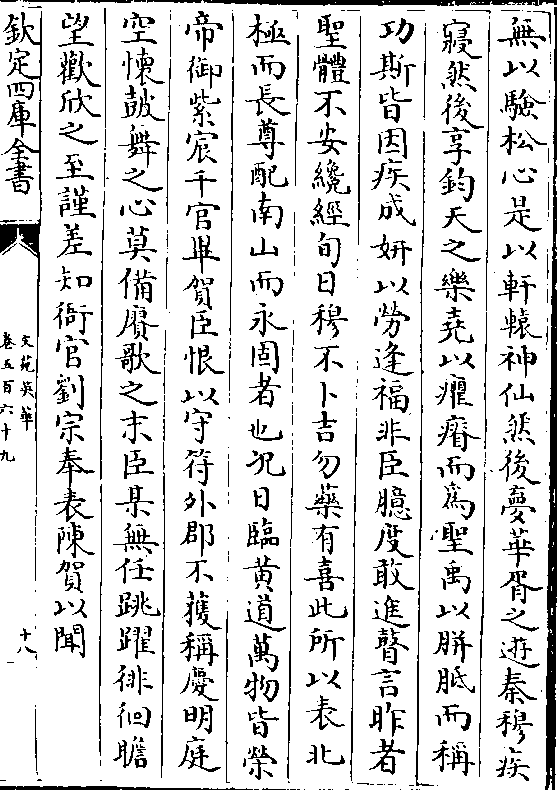 無以驗松心是以軒轅神仙然後夢華胥之遊秦穆疾
寢然後享鈞天之樂堯以癯瘠而為聖禹以胼胝而稱
功斯皆因疾成妍以勞逢福非臣臆度敢進瞽言昨者
聖體不安纔經旬日穆不卜吉勿藥有喜此所以表北
極而長尊配南山而永固者也況日臨黃道萬物皆榮
帝御紫宸千官畢賀臣恨以守符外郡不獲稱慶明庭
空懷鼓舞之心莫備賡歌之末臣某無任跳躍徘徊瞻
望歡欣之至謹差知衙官劉宗奉表陳賀以聞
欽定四庫全書
文苑英華
卷五百六十九
十八